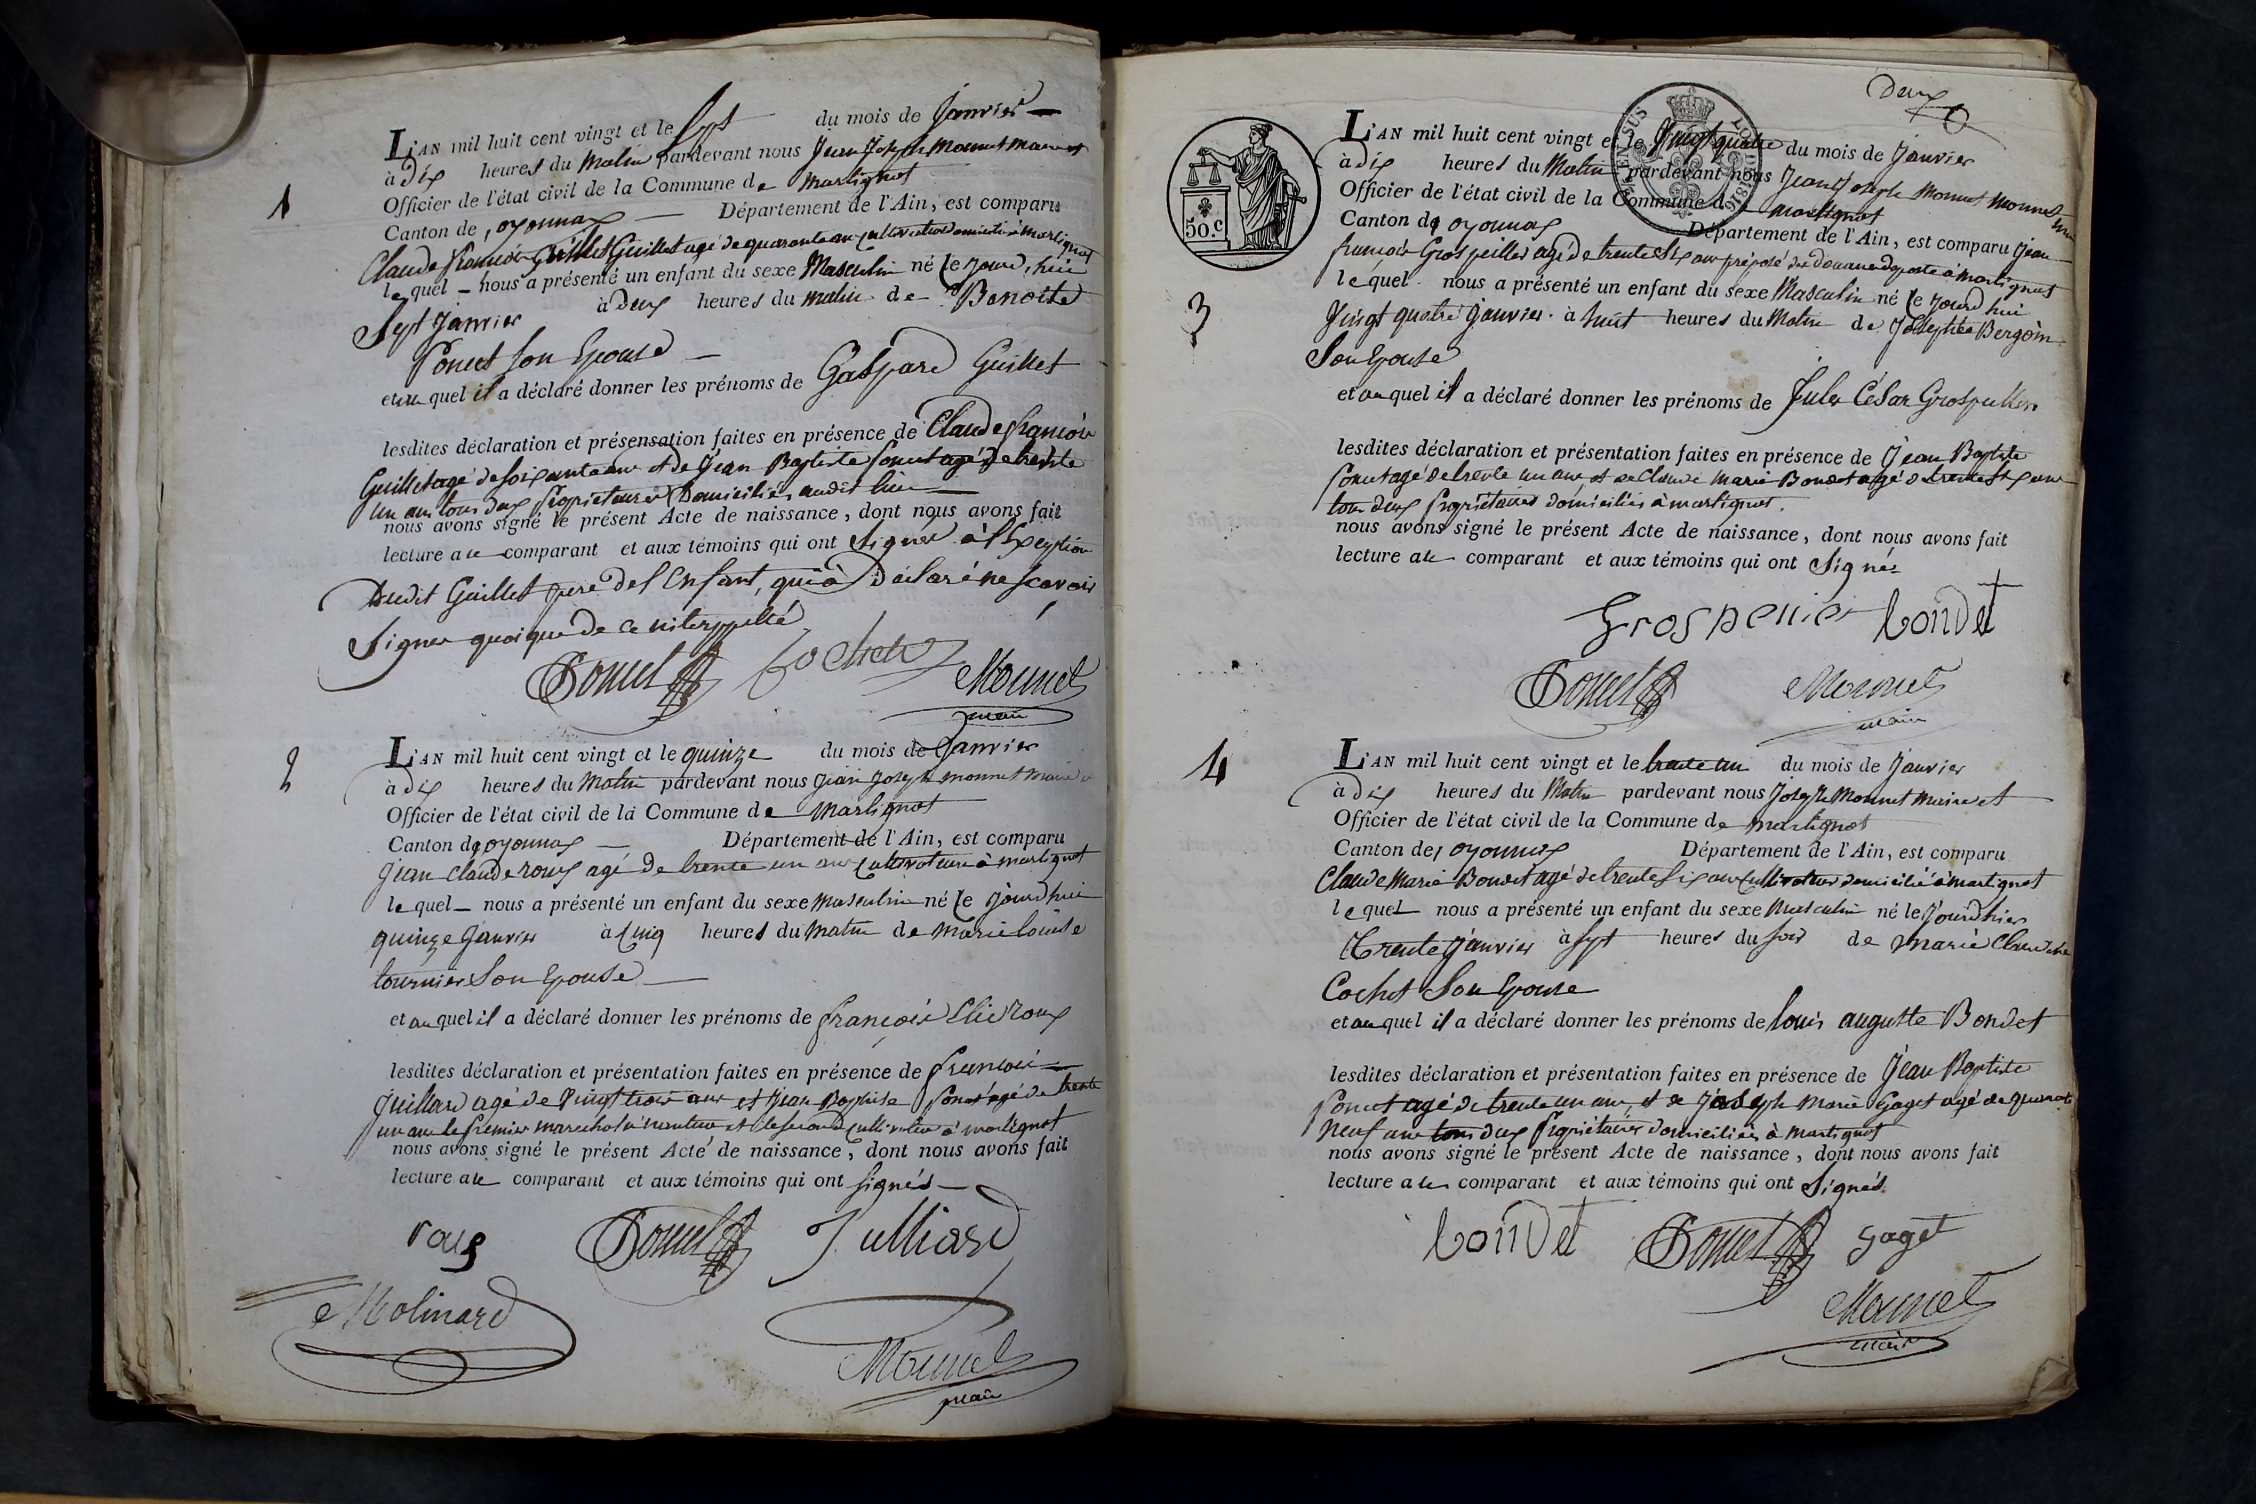 1
L'AN mil huit cent vingt et le Sept du mois de Janvier
à dix heures du Matin pardevant nous Jean Joseph Monnet Maire et
Officier de l'état civil de la Commune de Martignat
Canton de oyonnax Département de l'Ain, est comparu
Claude François Guillet agé de quarante ans Cultivateur domicilié à Martignat
lequel nous a présenté un enfant du sexe Masculin né le jourd'hui
Sept Janvier à deux heures du matin de Benoite
Poncet Son Epouse
et au quel il a déclaré donner les prénoms de Gaspard Guillet
lesdites déclaration et présensation faites en présence de Claude françois
Guillet agé de soixante ans et de Jean Baptiste Poncet agé de trente
un ans tous deux Propriétaires Domiciliés audit lieu
nous avons signé le présent Acte de naissance, dont nous avons fait
lecture au comparant et aux témoins qui ont Signer à l'Exception
Dudit Guillet pere de l'Enfant, qui à Déclaré ne Scavoir
Signer quoique de ce interppellé
Poncet Cochet Monnet
maire
2
L'AN mil huit cent vingt et le quinze du mois de Janvier
à dix heures du Matin pardevant nous Jean Joseph Monnet Maire et
Officier de l'état civil de la Commune de Martignat
Canton de oyonnax Département de l'Ain, est comparu
Jean Claude roux agé de trente un ans Cultivateur à martignat
lequel nous a présenté un enfant du sexe Masculin né le jourd'hui
quinze Janvier à Cinq heures du Matin de Marie louise
tournier Son Epouse
et au quel il a déclaré donner les prénoms de françois Elie Roux
lesdites déclaration et présentation faites en présence de françois
Juillard agé de Vingt trois ans et Jean Baptiste Poncet agé de trente
un ans le premier marechal et le second Cultivateur à martignat
nous avons signé le présent Acte de naissance, dont nous avons fait
lecture au comparant et aux témoins qui ont Signés
roux Poncet Julliard
Molinard
Monnet
maire
deux
LOI DE 1816
50. C
3
L'AN mil huit cent vingt et le Vingt quatre du mois de Janvier
à dix heures du Matin pardevant nous Jean Joseph Monnet
Officier de l'état civil de la Commune de Martignat
Canton de oyonnax Département de l'Ain, est comparu Jean
françois Grospellier agé de trente Six ans préposé des Douanes de poste à Martignat
lequel nous a présenté un enfant du sexe Masculin né le jourd'hui
Vingt quatre Janvier à huit heures du Matin de Josephte Bergoin
Son Epouse
et au quel il a déclaré donner les prénoms de Jules César Grospellier
lesdites déclaration et présentation faites en présence de Jean Baptiste
Poncet agé de trente un ans et de Claude Marie Bondet agé de trente Six ans
tous deux Propriétaires domiciliés à martignat.
nous avons signé le présent Acte de naissance, dont nous avons fait
lecture au comparant et aux témoins qui ont Signés
Grospellier bondet
Poncet Monnet
maire
4
L'AN mil huit cent vingt et le trente un du mois de Janvier
à dix heures du Matin pardevant nous Joseph Monnet Maire et
Officier de l'état civil de la Commune de Martignat
Canton de oyonnax Département de l'Ain, est comparu
Claude Marie Bondet agé de trente Six ans Cultivateur domicilié à Martignat
lequel nous a présenté un enfant du sexe Masculin né le Jourd'hier
trente Janvier à Sept heures du Soir de Marie Claudine
Cochet Son Epouse
et au quel il a déclaré donner les prénoms de louis auguste Bondet
lesdites déclaration et présentation faites en présence de Jean Baptiste
Poncet agé de trente un ans, et de Joseph Marie Gaget agé de quarante
neuf ans tous deux Propriétaires domiciliés à Martignat
nous avons signé le présent Acte de naissance, dont nous avons fait
lecture au comparant et aux témoins qui ont Signés.
bondet Poncet gaget
Monnet
maire